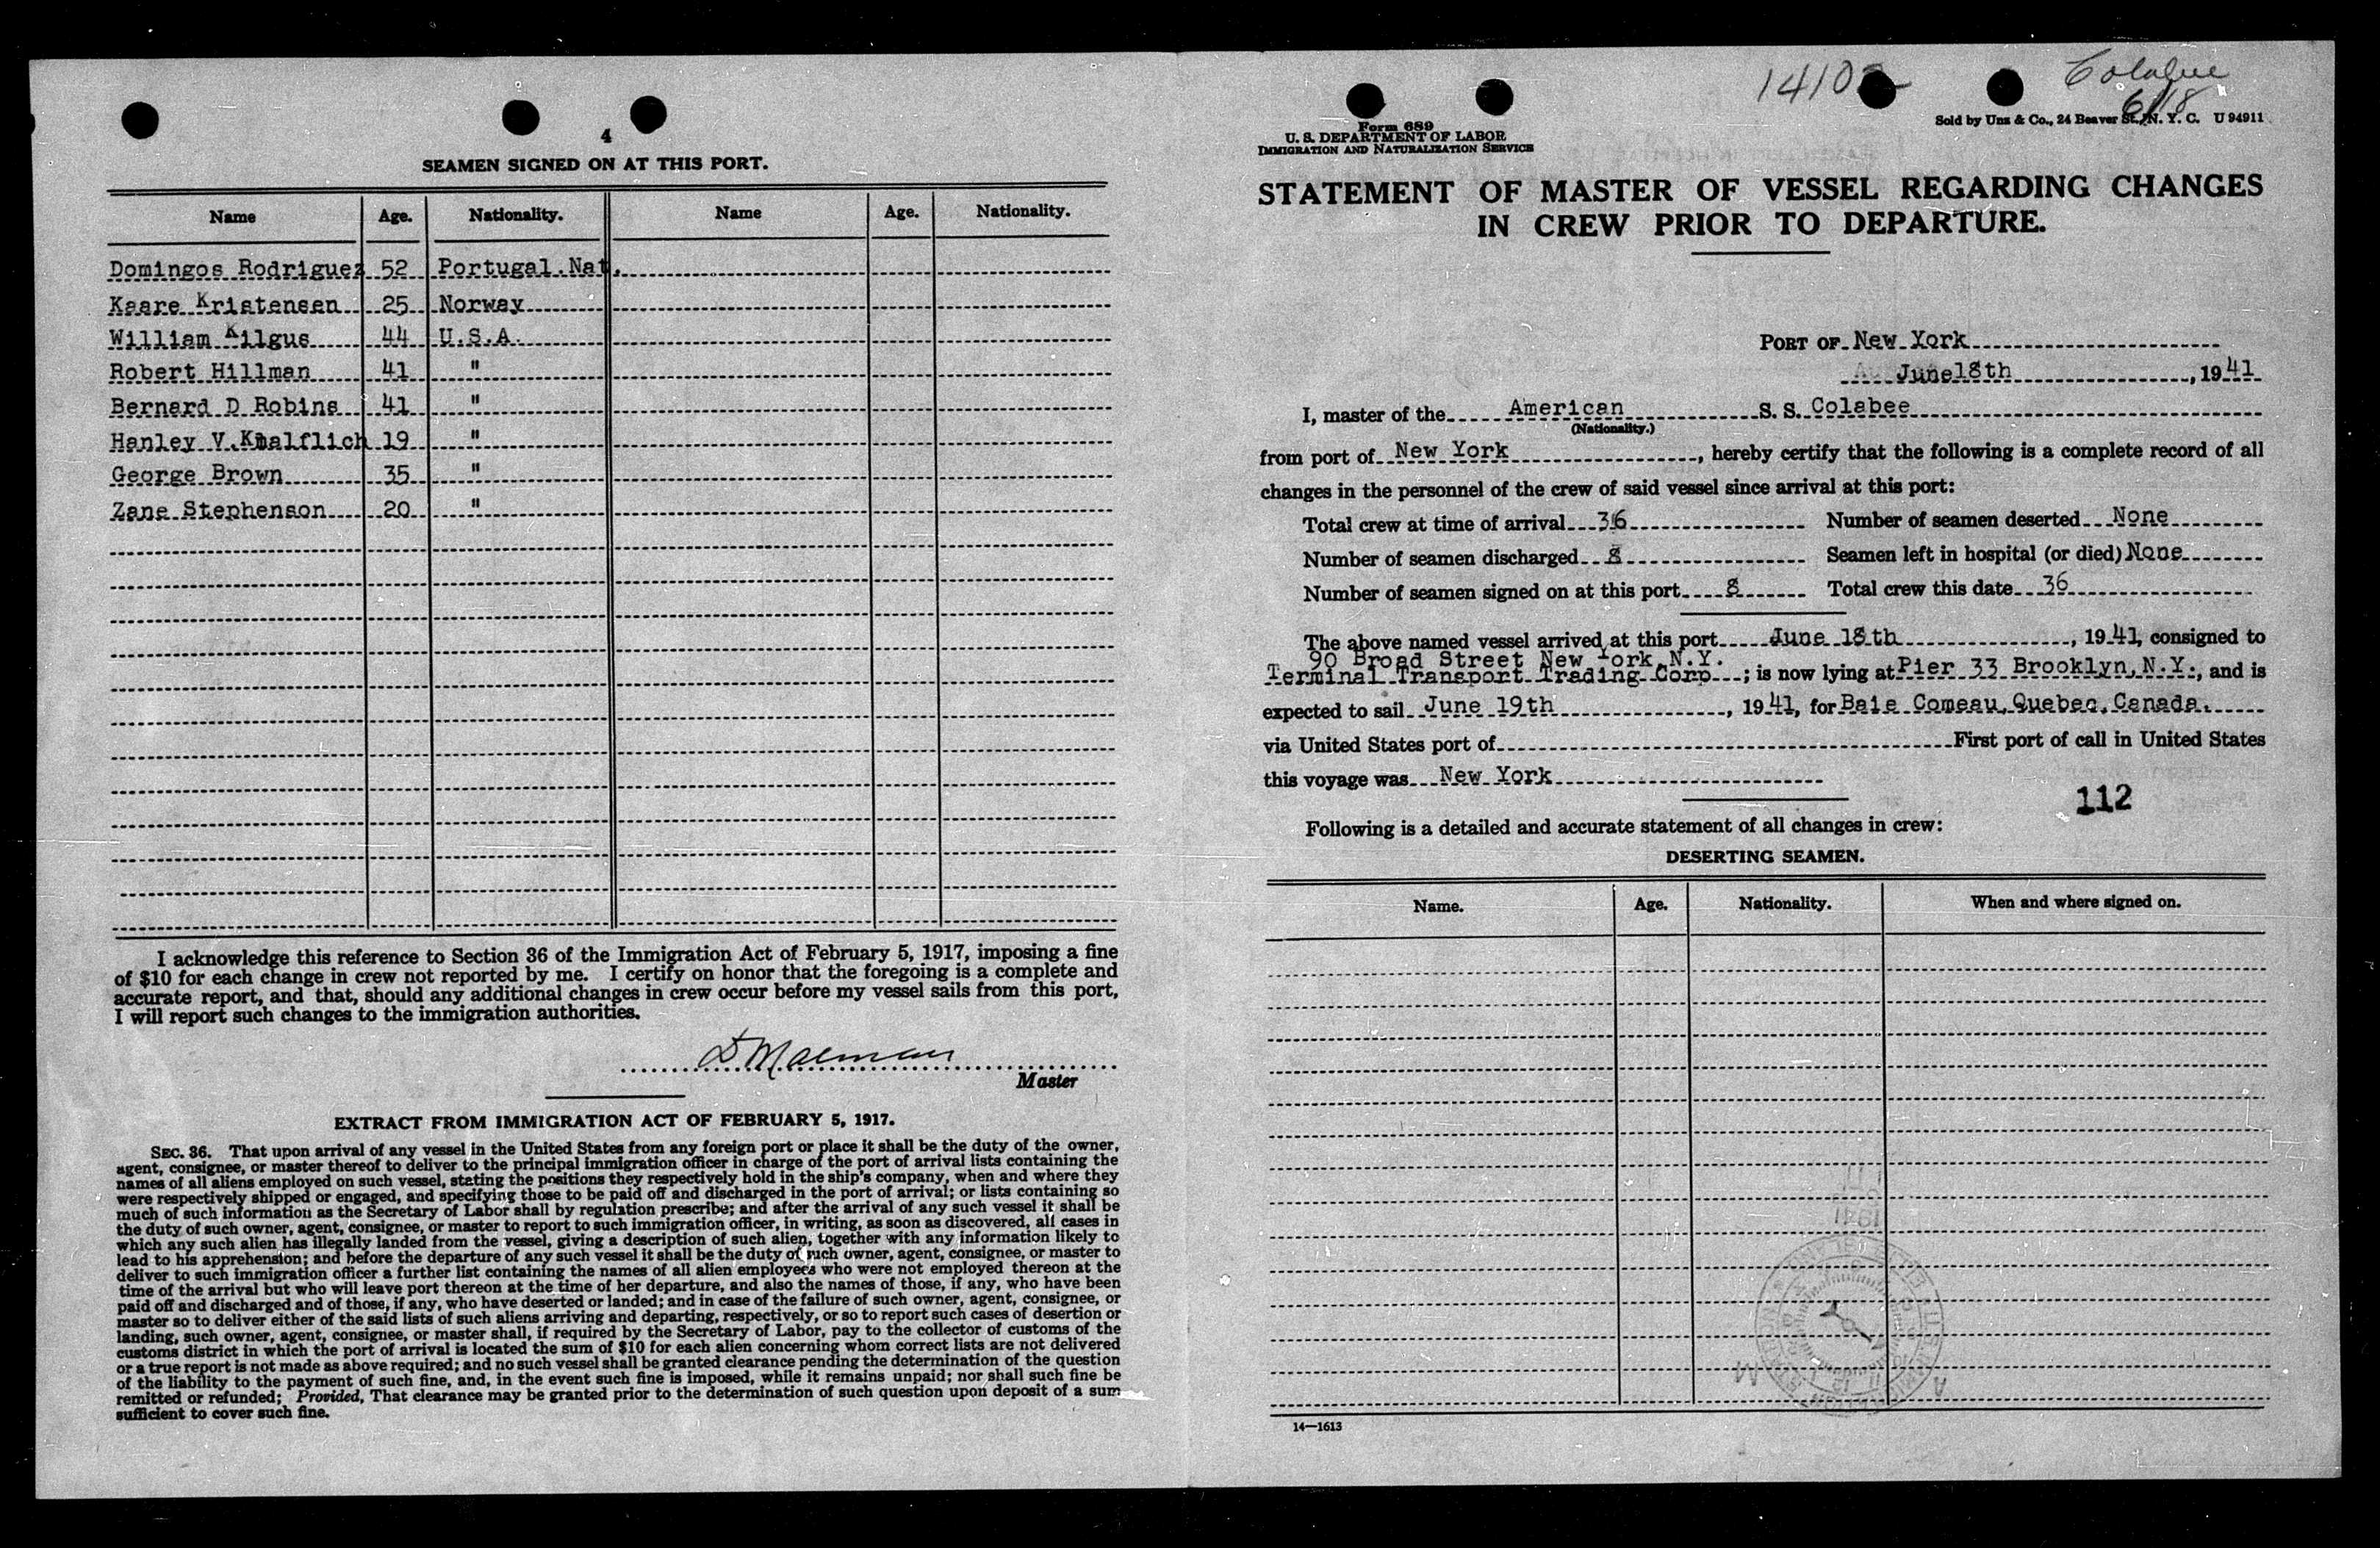 4
SEAMEN SIGNED ON AT THIS PORT.
Name Age. Nationality. Name Age. Nationality.
Domingos Rodriguez 52 Portugal.Nat.
Kaare Kristensen 25 Norway
William Kilgus 44 U.S.A.
Robert Hillman 41 "
Bernard D Robins 41 "
Hanley V. 19 "
George Brown 35 "
Zane Stephenson 20 "
I acknowledge this reference to Section 36 of the Immigration Act of February 5, 1917, imposing a fine
of $10 for each change in crew not reported by me. I certify on honor that the foregoing is a complete and
accurate report, and that, should any additional changes in crew occur before my vessel sails from this port,
I will report such changes to the immigration authorities.
Master
EXTRACT FROM IMMIGRATION ACT OF FEBRUARY 5, 1917.
SEC. 36. That upon arrival of any vessel in the United States from any foreign port or place it shall be the duty of the owner,
agent, consignee, or master thereof to deliver to the principal immigration officer in charge of the port of arrival lists containing the
names of all aliens employed on such vessel, stating the positions they respectively hold in the ship's company, when and where they
were respectively shipped or engaged, and specifying those to be paid off and discharged in the port of arrival; or lists containing so
much of such information as the Secretary of Labor shall by regulation prescribe; and after the arrival of any such vessel it shall be
the duty of such owner, agent, consignee, or master to report to such immigration officer, in writing, as soon as discovered, all cases in
which any such alien has illegally landed from the vessel, giving a description of such alien, together with any information likely to
lead to his apprehension; and before the departure of any such vessel it shall be the duty of such owner, agent, consignee, or master to
deliver to such immigration officer a further list containing the names of all alien employees who were not employed thereon at the
time of the arrival but who will leave port thereon at the time of her departure, and also the names of those, if any, who have been
paid off and discharged and of those, if any, who have deserted or landed; and in case of the failure of such owner, agent, consignee, or
master so to deliver either of the said lists of such aliens arriving and departing, respectively, or so to report such cases of desertion or
landing, such owner, agent, consignee, or master shall, if required by the Secretary of Labor, pay to the collector of customs of the
customs district in which the port of arrival is located the sum of $10 for each alien concerning whom correct lists are not delivered
or a true report is not made as above required; and no such vessel shall be granted clearance pending the determination of the question
of the liability to the payment of such fine, and, in the event such fine is imposed, while it remains unpaid; nor shall such fine be
remitted or refunded; Provided, That clearance may be granted prior to the determination of such question upon deposit of a sum
sufficient to cover such fine.
6/18
Form 689
U. S. DEPARTMENT OF LABOR
IMMIGRATION AND NATURALIZATION SERVICE
Sold by Unz & Co., 24 Beaver St., N. Y. C. U 94911
STATEMENT OF MASTER OF VESSEL REGARDING CHANGES
IN CREW PRIOR TO DEPARTURE.
PORT OF New York
June18th, 1941
I, master of the American S. S. Colabee
(Nationality.)
from port of New York, hereby certify that the following is a complete record of all
changes in the personnel of the crew of said vessel since arrival at this port:
Total crew at time of arrival 36 Number of seamen deserted None
Number of seamen discharged 8 Seamen left in hospital (or died) None
Number of seamen signed on at this port 8 Total crew this date 36
The above named vessel arrived at this port June 18th, 1941, consigned to
90 Broad Street New York,N.Y.
Terminal Transport Trading Corp; is now lying at Pier 33 Brooklyn,N.Y., and is
expected to sail June 19th, 1941, for Baie Comeau,Quebec,Canada.
via United States port of First port of call in United States
this voyage was New York
112
Following is a detailed and accurate statement of all changes in crew:
DESERTING SEAMEN.
Name. Age. Nationality. When and where signed on.
14—1613